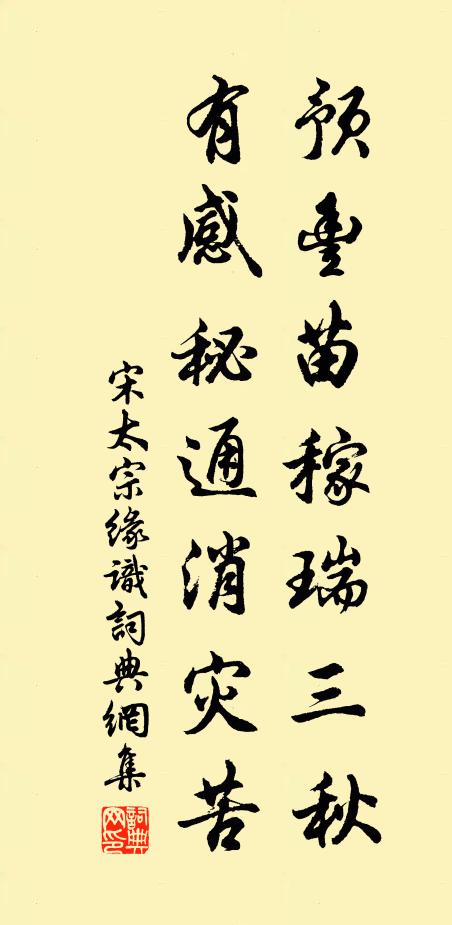 預豐苗稼瑞三秋
有感秘通消灾苦
宋太宗緣識詞典網集
詞典網印